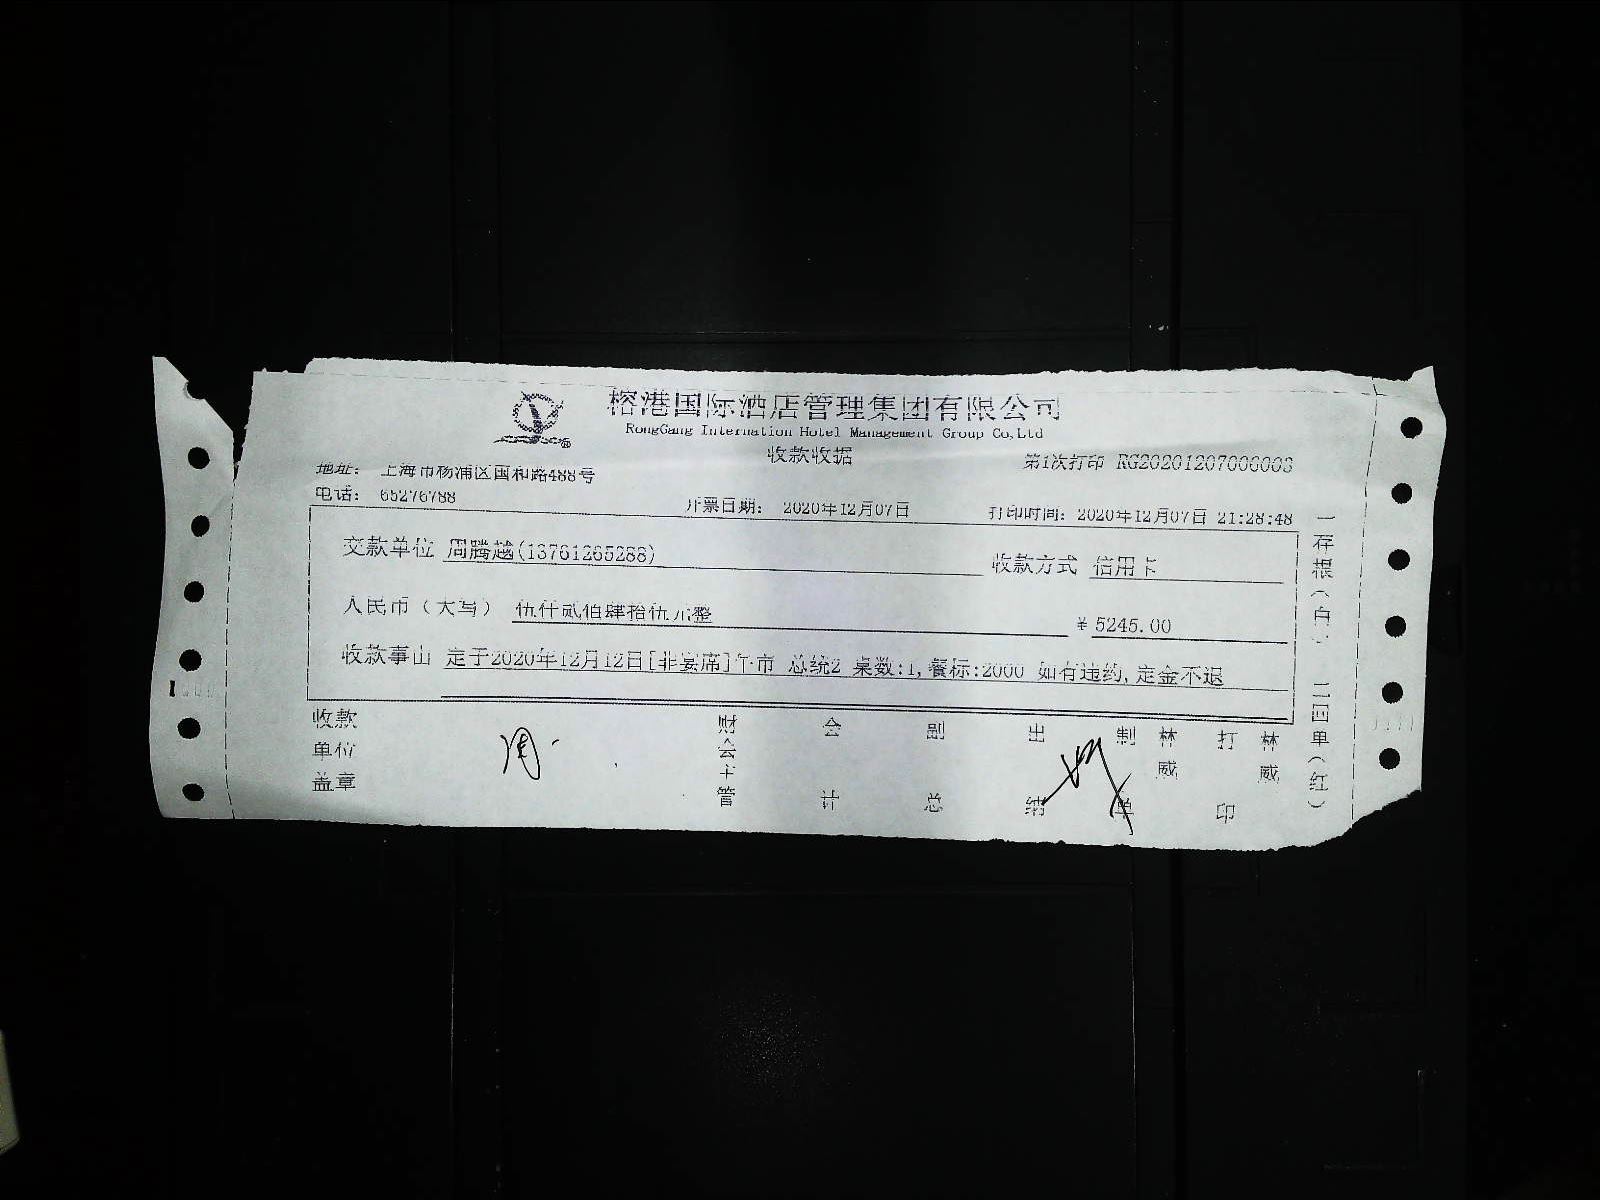 榕港国际酒店管理集团有限公司
RongGang Internation Hotel Management Group Co,Ltd
收款收据
第1次打印 RG20201207000003
地址: 上海市杨浦区国和路488号
电话: 65276788
开票日期: 2020年12月07日
打印时间: 2020年12月07日 21:28:48
交款单位 周腾越(13761265288)
收款方式 信用卡
人民币（大写） 伍仟贰佰肆拾伍元整
¥ 5245.00
收款事由 定于2020年12月12日[非宴席]午市 总统2 桌数:1,餐标:2000 如有违约,定金不退
收款单位盖章
周
财会主管
会计
副总
出纳
制单
林威
打印
林威
一存根(白) 二回单(红)